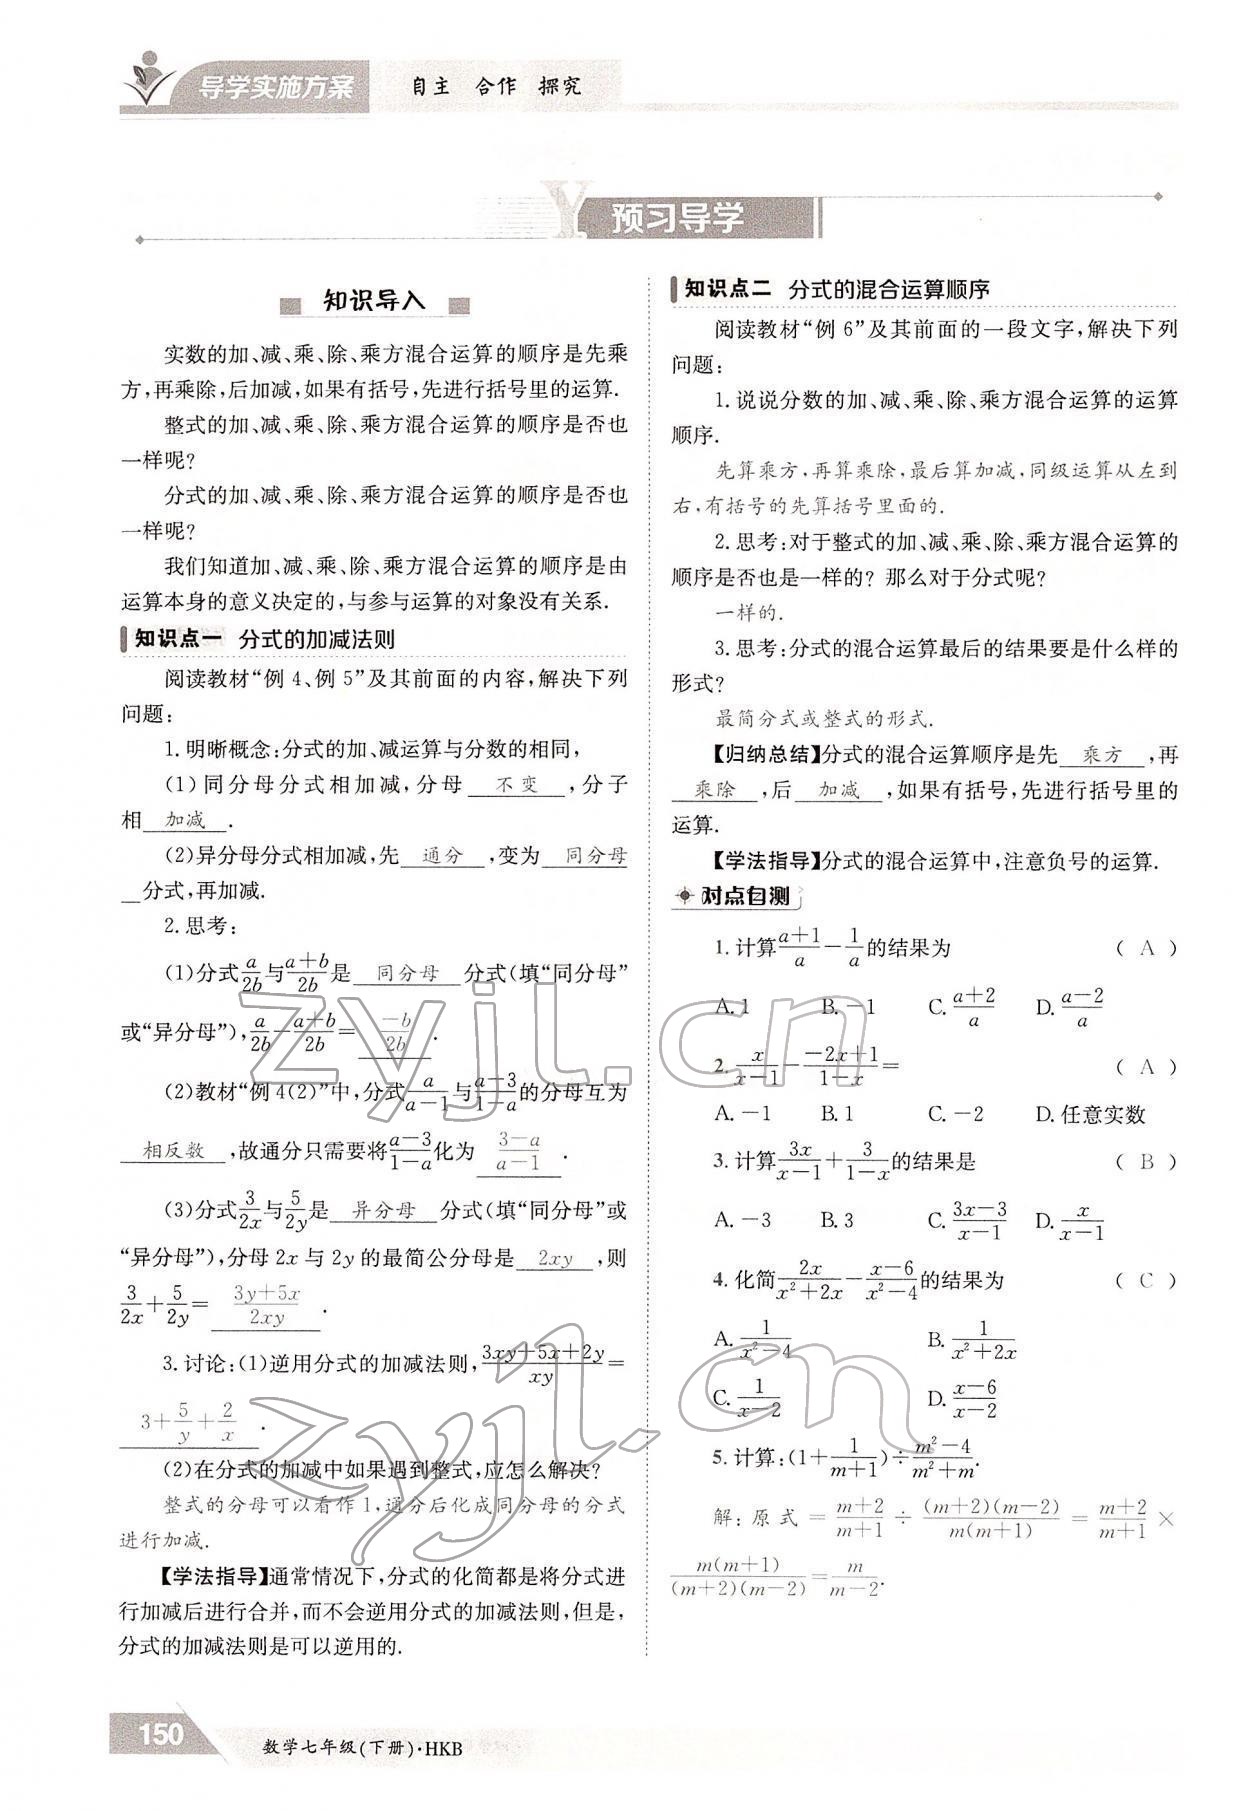 导学实施方案 自主 合作 探究
预习导学
知识导入
实数的加、减、乘、除、乘方混合运算的顺序是先乘
方,再乘除,后加减,如果有括号,先进行括号里的运算.
整式的加、减、乘、除、乘方混合运算的顺序是否也
一样呢?
分式的加、减、乘、除、乘方混合运算的顺序是否也
一样呢?
我们知道加、减、乘、除、乘方混合运算的顺序是由
运算本身的意义决定的,与参与运算的对象没有关系.
知识点一 分式的加减法则
阅读教材“例 4、例 5”及其前面的内容,解决下列
问题:
1. 明晰概念:分式的加、减运算与分数的相同,
(1)同分母分式相加减,分母 不变 ,分子
相 加减 .
(2)异分母分式相加减,先 通分 ,变为 同分母
分式,再加减.
2. 思考:
(1)分式a/2b与(a+b)/2b是 同分母 分式(填“同分母”
或“异分母”),a/2b-(a+b)/2b= -b/2b .
(2)教材“例 4(2)”中,分式a/(a-1)与(a-3)/(1-a)的分母互为
相反数 ,故通分只需要将(a-3)/(1-a)化为 (3-a)/(a-1) .
(3)分式3/2x与5/2y是 异分母 分式(填“同分母”或
“异分母”),分母 2x 与 2y 的最简公分母是 2xy ,则
3/2x+5/2y= (3y+5x)/2xy .
3. 讨论:(1)逆用分式的加减法则,(3xy+5x+2y)/xy=
3+5/y+2/x .
(2)在分式的加减中如果遇到整式,应怎么解决?
整式的分母可以看作 1,通分后化成同分母的分式
进行加减.
【学法指导】通常情况下,分式的化简都是将分式进
行加减后进行合并,而不会逆用分式的加减法则,但是,
分式的加减法则是可以逆用的.
知识点二 分式的混合运算顺序
阅读教材“例 6”及其前面的一段文字,解决下列
问题:
1. 说说分数的加、减、乘、除、乘方混合运算的运算
顺序.
先算乘方,再算乘除,最后算加减,同级运算从左到
右,有括号的先算括号里面的.
2. 思考:对于整式的加、减、乘、除、乘方混合运算的
顺序是否也是一样的? 那么对于分式呢?
一样的.
3. 思考:分式的混合运算最后的结果要是什么样的
形式?
最简分式或整式的形式.
【归纳总结】分式的混合运算顺序是先 乘方 ,再
乘除 ,后 加减 ,如果有括号,先进行括号里的
运算.
【学法指导】分式的混合运算中,注意负号的运算.
对点自测
1. 计算(a+1)/a-1/a的结果为 ( A )
A. 1 B. -1 C. (a+2)/a D. (a-2)/a
2. x/(x-1)-(-2x+1)/(1-x)= ( A )
A. -1 B. 1 C. -2 D. 任意实数
3. 计算3x/(x-1)+3/(1-x)的结果是 ( B )
A. -3 B. 3 C. (3x-3)/(x-1) D. x/(x-1)
4. 化简2x/(x²+2x)-(x-6)/(x²-4)的结果为 ( C )
A. 1/(x²-4) B. 1/(x²+2x)
C. 1/(x-2) D. (x-6)/(x-2)
5. 计算:(1+1/(m+1))÷(m²-4)/(m²+m).
解:原式=(m+2)/(m+1)÷(m+2)(m-2)/m(m+1)=(m+2)/(m+1)×
m(m+1)/(m+2)(m-2)=m/(m-2).
150 数学七年级(下册)·HKB
zyjl.cn
zyjl.cn